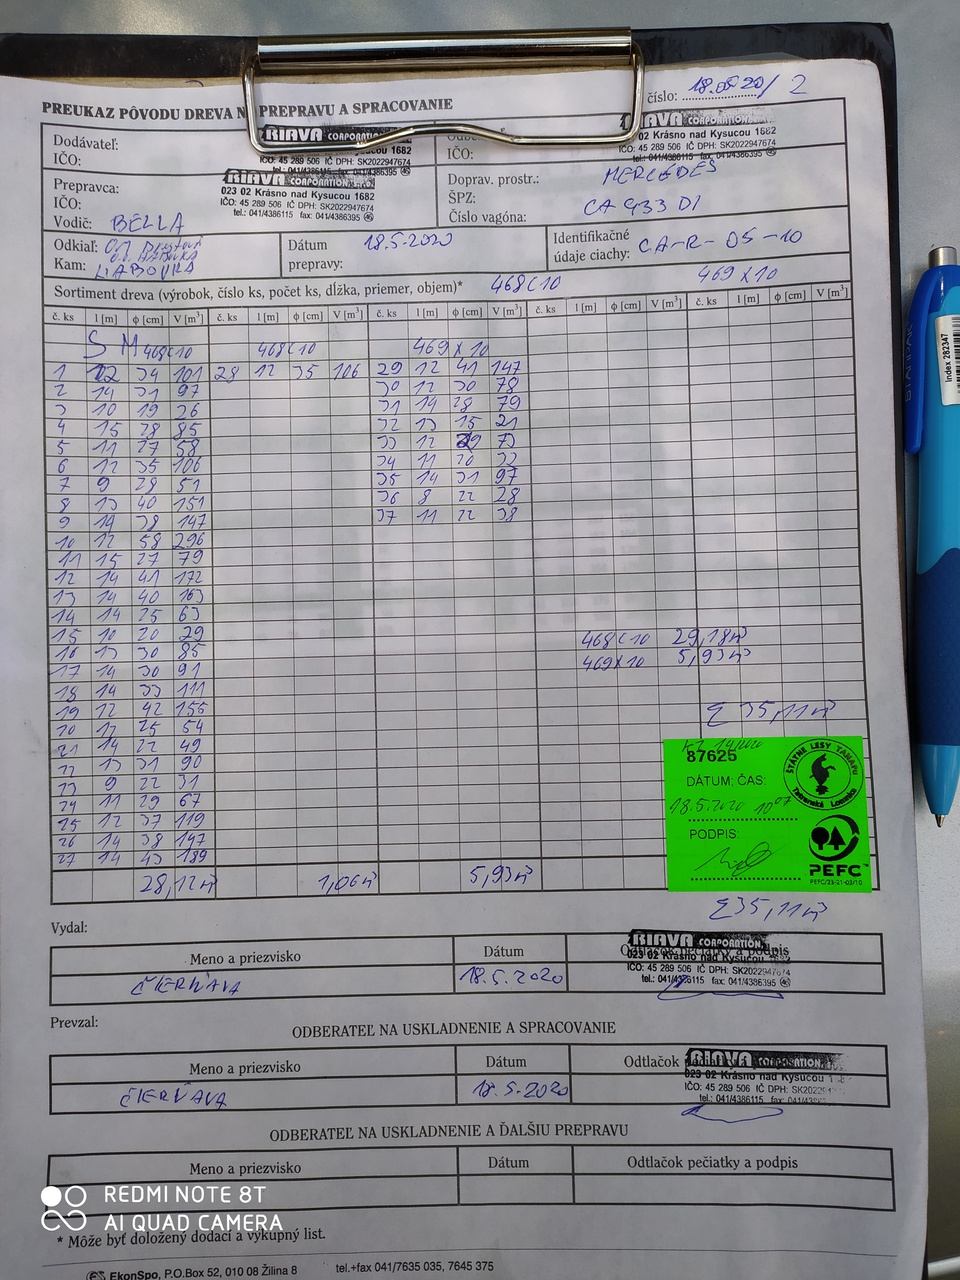 PREUKAZ PÔVODU DREVA NA PREPRAVU A SPRACOVANIE
číslo: 18.05 20/2
Dodávateľ:
IČO:
RIAVA CORPORATION
Krásno nad Kysucou 1682
IČO: 45 289 506 IČ DPH: SK2022947674
tel.: 041/4386115 fax: 041/4386395
IČO:
RIAVA CORPORATION
02 Krásno nad Kysucou 1682
IČO: 45 289 506 IČ DPH: SK2022947674
tel.: 041/4386115 fax: 041/4386395
Prepravca:
IČO:
Vodič: BELLA
RIAVA CORPORATION
023 02 Krásno nad Kysucou 1682
IČO: 45 289 506 IČ DPH: SK2022947674
tel.: 041/4386115 fax: 041/4386395
Doprav. prostr.: MERCEDES
ŠPZ: CA 933 DI
Číslo vagóna:
Odkiaľ:
Kam: HABOVKA
Dátum prepravy: 18.5.2020
Identifikačné údaje ciachy: CA-R-05-10
Sortiment dreva (výrobok, číslo ks, počet ks, dĺžka, priemer, objem)* 468C10 469X10
č. ks l [m] ϕ [cm] V [m³] č. ks l [m] ϕ [cm] V [m³] č. ks l [m] ϕ [cm] V [m³] č. ks l [m] ϕ [cm] V [m³]
SM 468C10 468C10 469X10
1 12 34 101 28 12 35 106 29 12 41 147
2 14 31 97 30 12 30 78
3 10 19 26 31 14 28 79
4 15 28 85 32 13 15 21
5 11 27 58 33 12 29 73
6 12 35 106 34 11 20 32
7 9 28 51 35 14 31 97
8 13 40 151 36 8 22 28
9 14 38 147 37 11 22 38
10 12 58 296
11 15 27 79
12 14 41 172
13 14 40 163
14 14 25 63
15 10 20 29 468C10 29,18m³
16 13 30 85 469X10 5,93m³
17 14 30 91
18 14 33 111
19 12 42 155 Σ 35,11m³
20 12 25 54
21 14 22 49
22 13 31 90
23 9 22 31
24 11 29 67
25 12 37 119
26 14 38 147
27 14 43 189
28,12m³ 1,06m³ 5,93m³
87625
DÁTUM; ČAS:
18.5.2020 10⁰⁷
PODPIS:
ŠTÁTNE LESY TANAPU
Tatranská Lomnica
PEFC
PEFC/23-21-03/10
Σ35,11m³
Vydal:
Meno a priezvisko Dátum Odtlačok pečiatky a podpis
ČIERŇAVA 18.5.2020
RIAVA CORPORATION
023 02 Krásno nad Kysucou
IČO: 45 289 506 IČ DPH: SK2022947674
tel.: 041/4386115 fax: 041/4386395
Prevzal:
ODBERATEĽ NA USKLADNENIE A SPRACOVANIE
Meno a priezvisko Dátum Odtlačok pečiatky a podpis
ČIERŇAVA 18.5.2020
RIAVA CORPORATION
023 02 Krásno nad Kysucou
IČO: 45 289 506 IČ DPH:
tel.: 041/4386115 fax:
ODBERATEĽ NA USKLADNENIE A ĎALŠIU PREPRAVU
Meno a priezvisko Dátum Odtlačok pečiatky a podpis
* Môže byť doložený dodací a výkupný list.
EkonSpo, P.O.Box 52, 010 08 Žilina 8 tel.+fax 041/7635 035, 7645 375
Index 282347
REDMI NOTE 8T
AI QUAD CAMERA